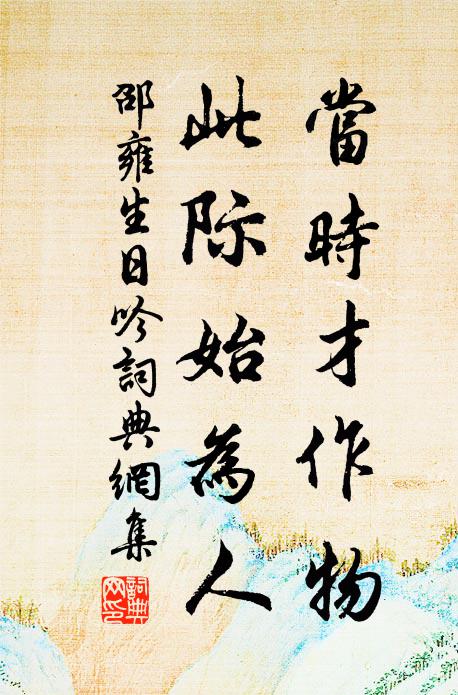 當時才作物
此际始為人
邵雍生日吟詞典網集